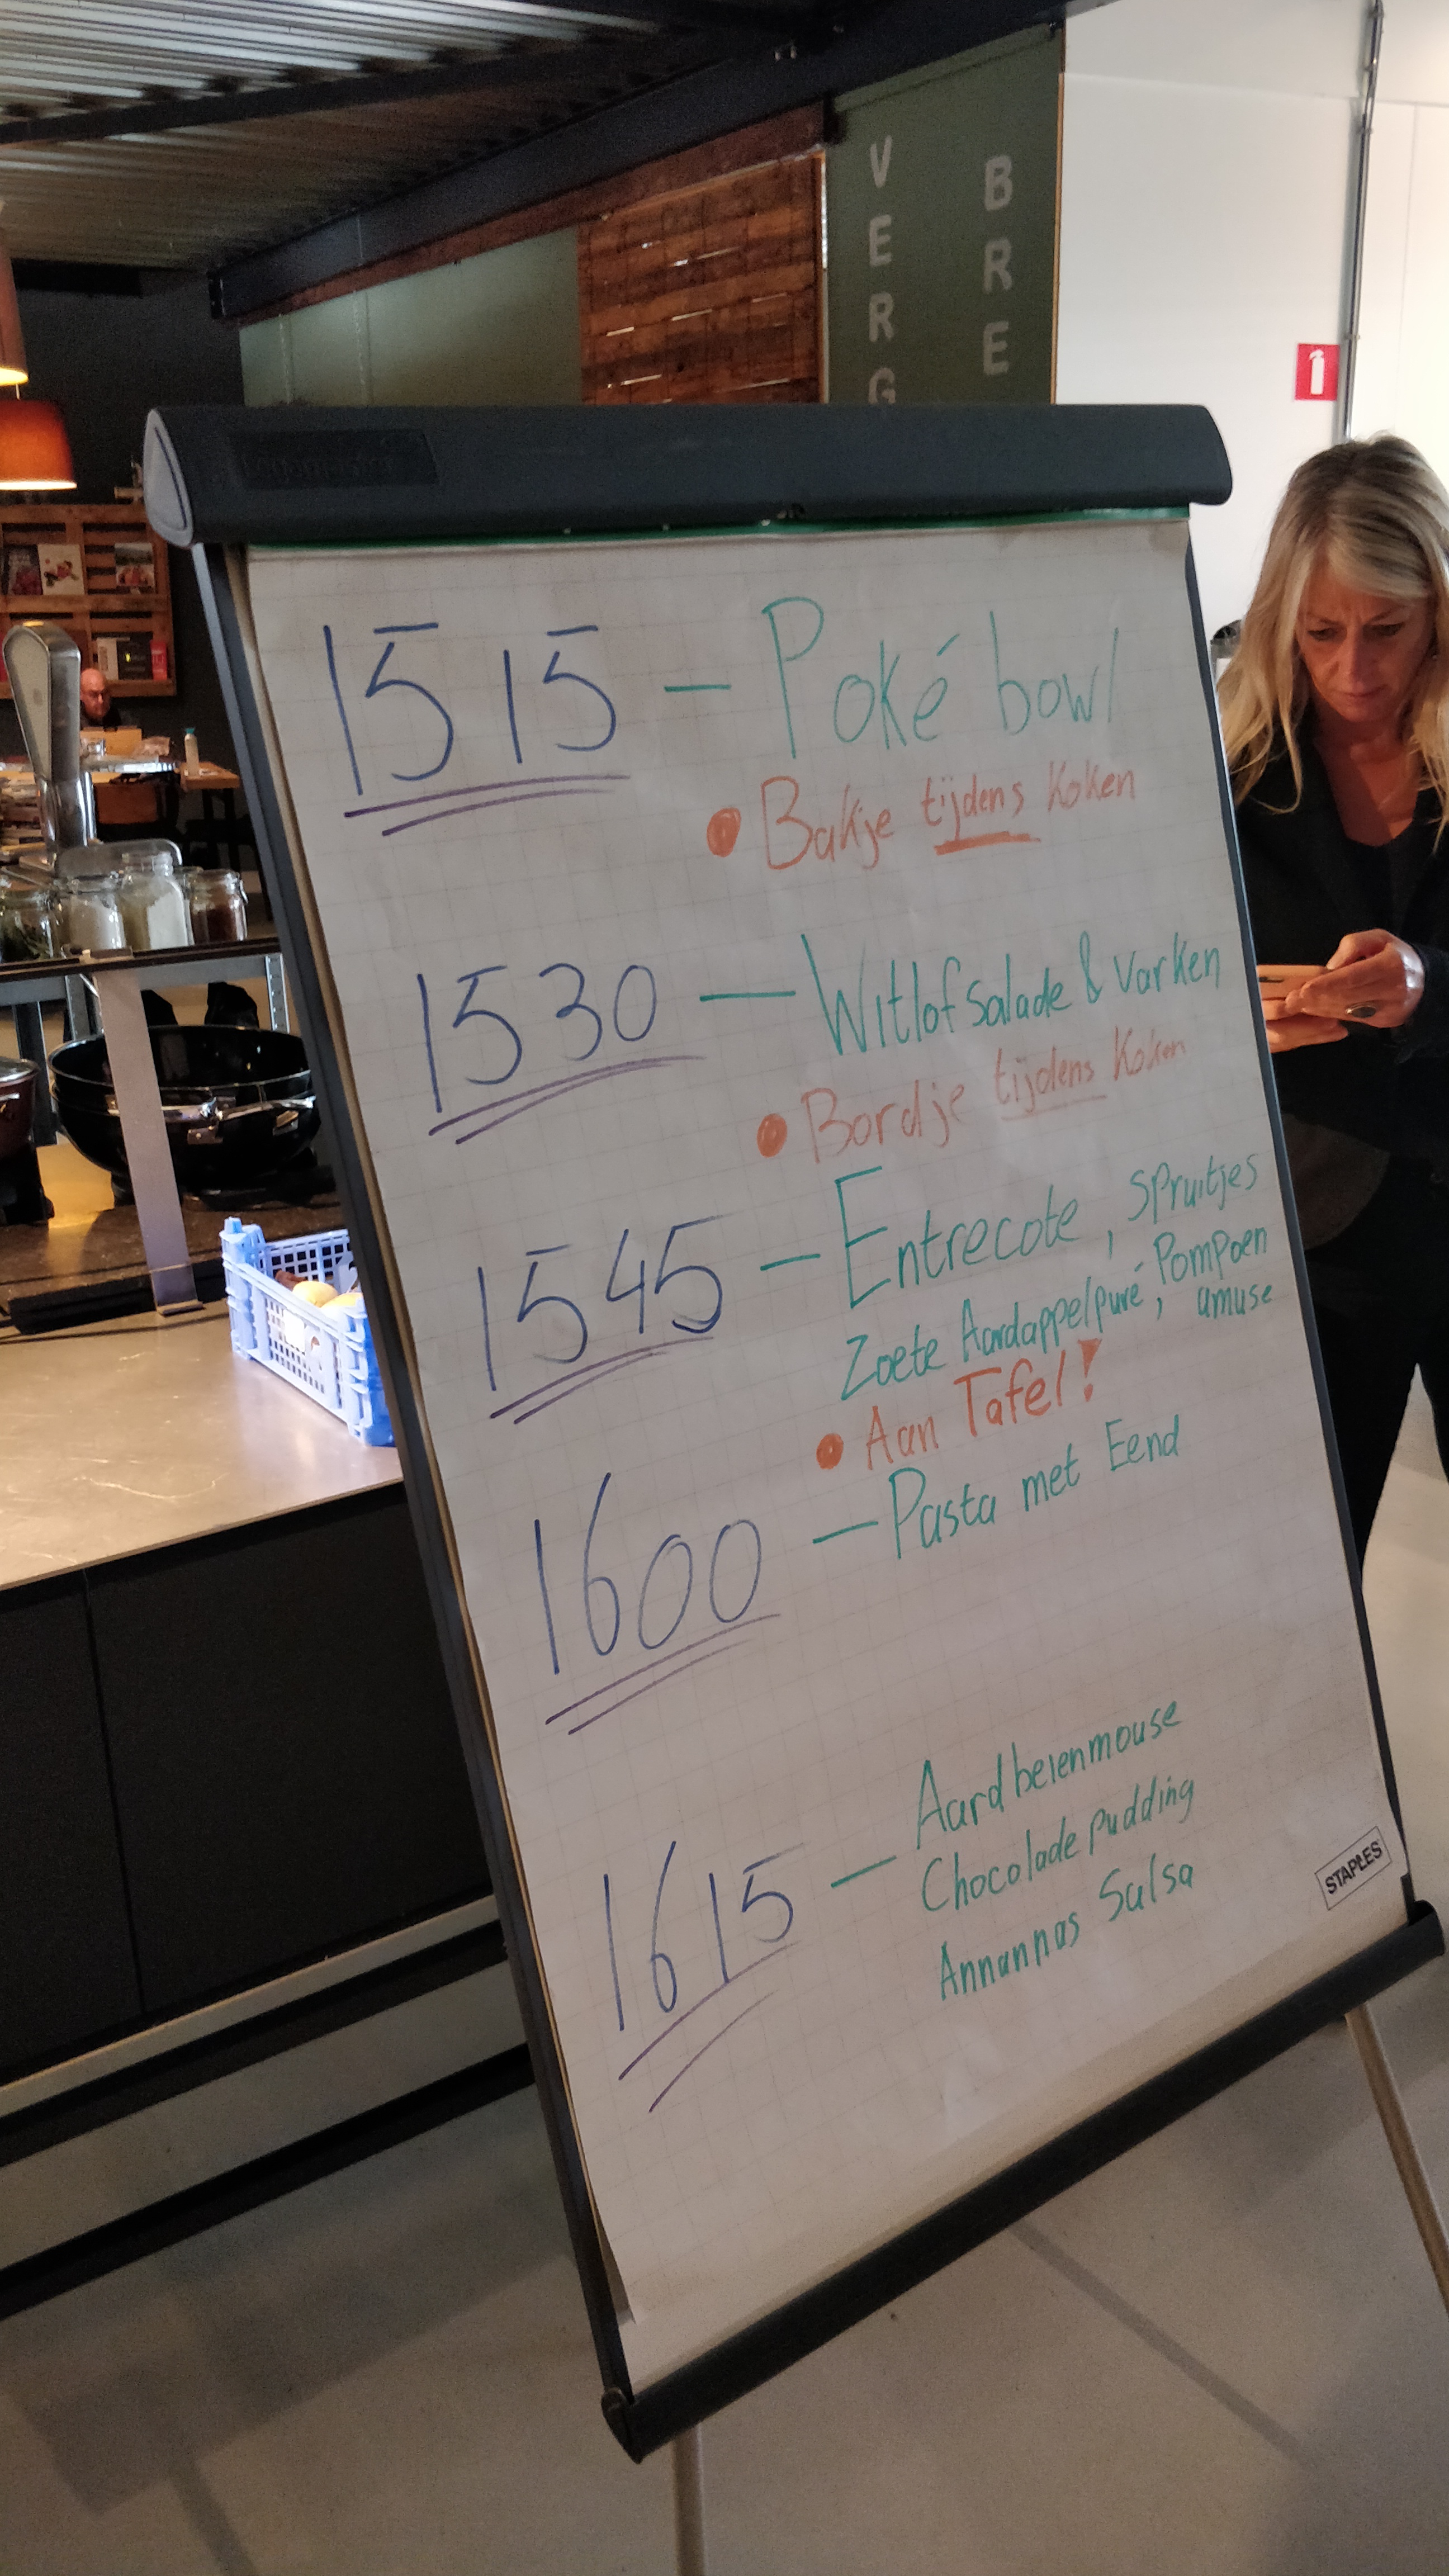 VERG
BRE
Legamaster
1515 — Poké bowl
• Bakje tijdens koken
1530 — Witlofsalade & varken
• Bordje tijdens koken
1545 — Entrecote, spruitjes
Zoete Aardappelpuré, Pompoen
amuse
• Aan Tafel!
1600 — Pasta met Eend
1615 — Aardbeienmouse
Chocoladepudding
Annannas Salsa
STAPLES